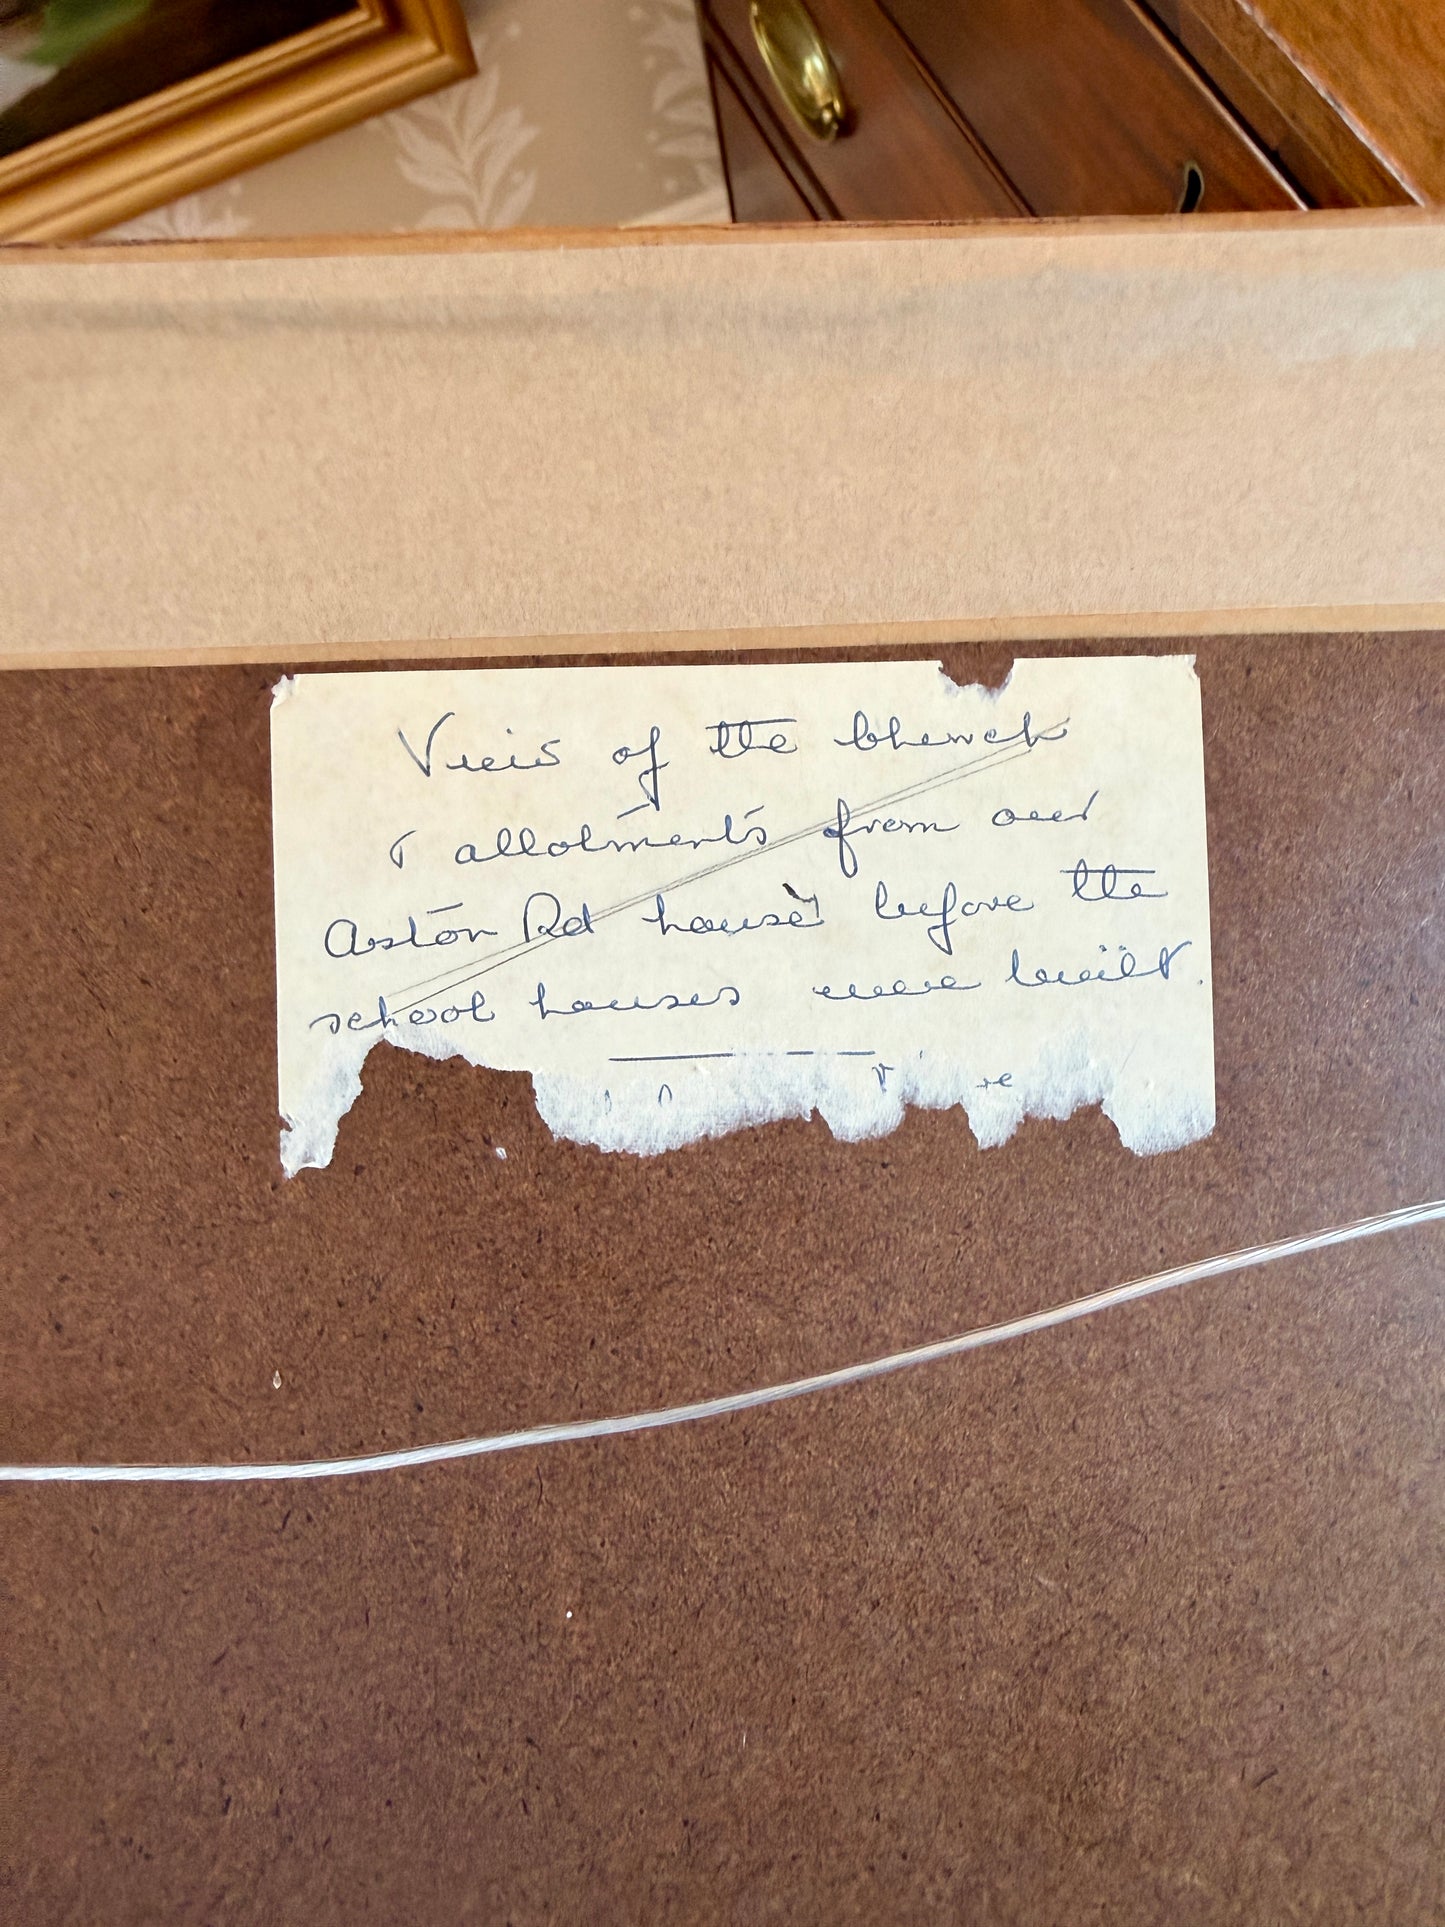 View of the church
& allotments from our
Aston Rd house before the
school houses were built.